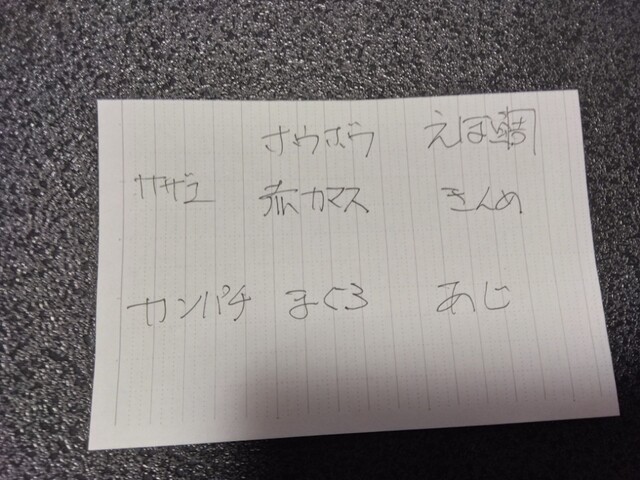 ホウボウ えぼ鯛
サザエ 赤カマス きんめ
カンパチ まぐろ あじ